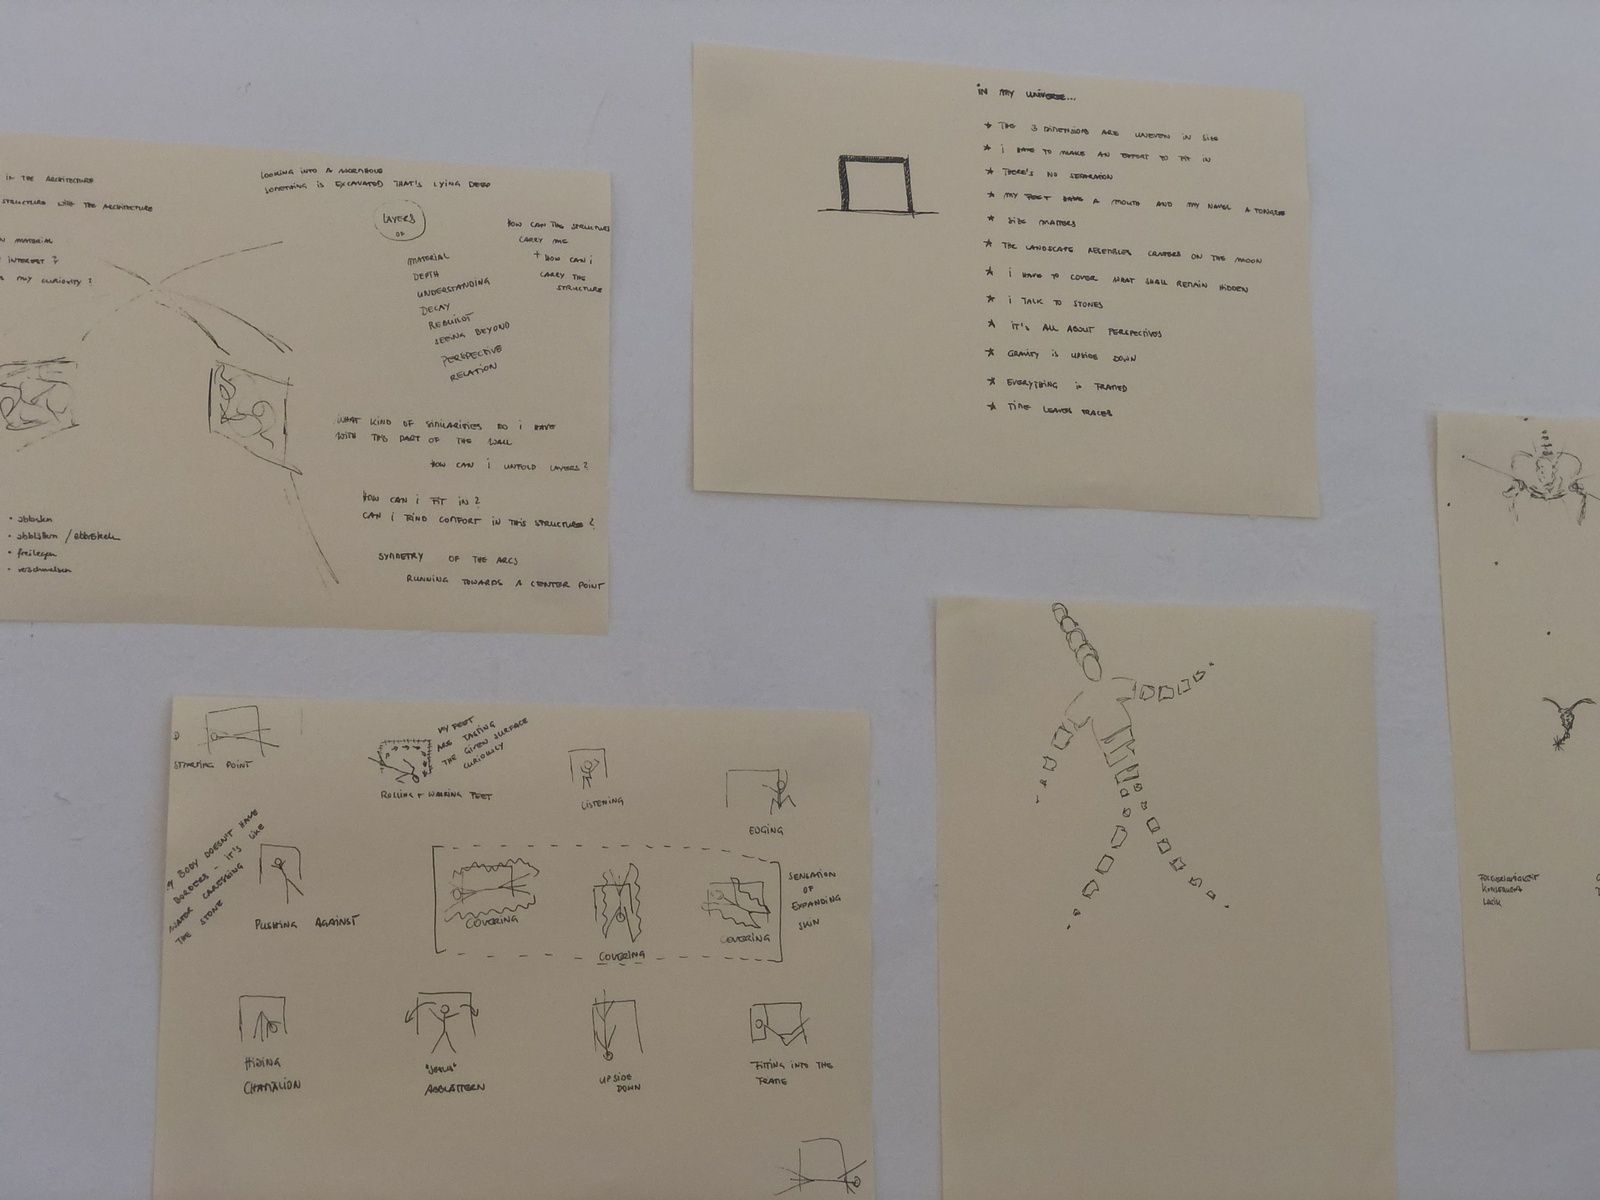 IN THE ARCHITECTURE
STRUCTURE WITH THE ARCHITECTURE
MATERIAL
INTEREST?
MY CURIOSITY?
LOOKING INTO A WORMHOLE
SOMETHING IS EXCAVATED THAT'S LYING DEEP
LAYERS
OF
MATERIAL
DEPTH
UNDERSTANDING
DECAY
REBUILDT
SEEING BEYOND
PERSPECTIVE
RELATION
HOW CAN THE STRUCTURE
CARRY ME
+ HOW CAN I
CARRY THE
STRUCTURE
WHAT KIND OF SIMILARITIES DO I HAVE
WITH THIS PART OF THE WALL
HOW CAN I UNFOLD LAYERS?
HOW CAN I FIT IN?
CAN I FIND COMFORT IN THIS STRUCTURE?
SYMMETRY OF THE ARCS
RUNNING TOWARDS A CENTER POINT
• abblättern /
• freilegen
• verschmelzen
IN MY UNIVERSE...
* THE 3 DIMENSIONS ARE UNEVEN IN SIZE
* I HAVE TO MAKE AN EFFORT TO FIT IN
* THERE'S NO SEPARATION
* MY FEET HAVE A MOUTH AND MY NAVEL A TONGUE
* SIZE MATTERS
* THE LANDSCAPE RESEMBLES CRATERS ON THE MOON
* I HAVE TO COVER WHAT SHALL REMAIN HIDDEN
* I TALK TO STONES
* IT'S ALL ABOUT PERSPECTIVES
* GRAVITY IS UPSIDE DOWN
* EVERYTHING IS FRAMED
* TIME LEAVES TRACES
STARTING POINT
MY FEET
ARE TASTING
THE GIVEN SURFACE
CURIOUSLY
ROLLING + WALKING FEET
LISTENING
EDGING
MY BODY DOESN'T HAVE
BORDERS - IT'S LIKE
WATER CARESSING
THE STONE
PUSHING AGAINST
COVERING
COVERING
COVERING
SENSATION
OF
EXPANDING
SKIN
HIDING
CHAMALION
ABBLÄTTERN
UPSIDE
DOWN
FITTING INTO THE
FRAME
LACK